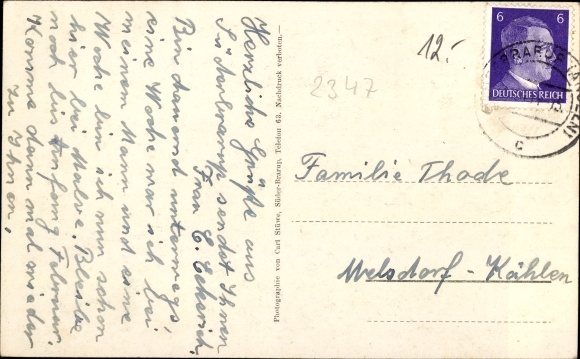 Herzliche Grüße aus
Süderbrarup sendet Ihnen
Frau E. Eckerich.
Bin dauernd unterwegs,
eine Woche war ich bei
meinem Mann und eine
Woche bin ich nun schon
hier bei Malve. Bleibe
noch bis Anfang Februar.
Komme dann mal wieder
zu Ihnen.
Photographie von Carl Stüwe, Süder-Brarup, Telefon 63. Nachdruck verboten.
12.-
2347
6 6
DEUTSCHES REICH
BRARUP
(ANGELN)
c
Familie Thode
Melsdorf-Kählen